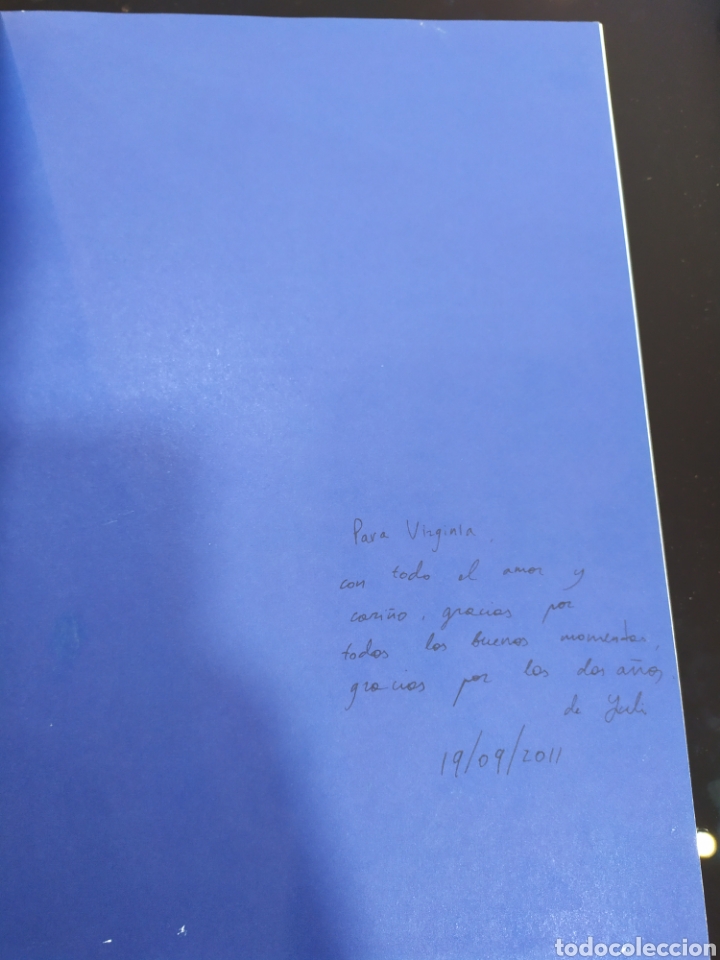 Para Virginia,
con todo el amor y
cariño, gracias por
todos los buenos momentos,
gracias por los dos años.
de Yuli
19/09/2011
todocoleccion